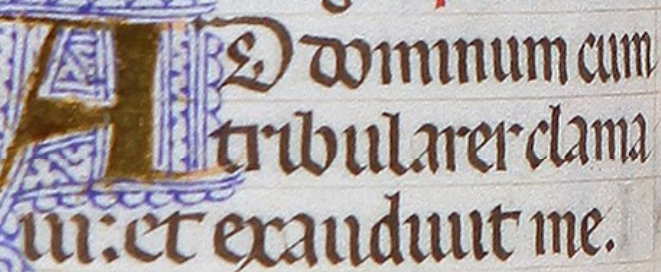 AD dominum cum
tribularer clama
ui: et exaudiuit me.